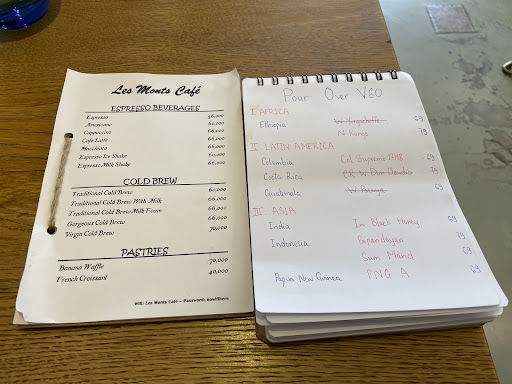 Les Monts Café
ESPRESSO BEVERAGES
Espresso 56,000
Americano 60,000
Cappuccino 66,000
Cafe Latte 66,000
Macchiato 66,000
Espresso Ice Shake 60,000
Espresso Milk Shake 66,000
COLD BREW
Traditional Cold Brew 60,000
Traditional Cold Brew With Milk 66,000
Traditional Cold Brew Milk Foam 66,000
Gorgeous Cold Brew 66,000
Virgin Cold Brew 70,000
PASTRIES
Banana Waffle 70,000
French Croissant 40,000
Wifi: Les Monts Café - Password:
Pour Over V60
I AFRICA
Ethiopia W Yirgacheffe 69
N Kongo 79
II LATIN AMERICA
Colombia Col Supreme 69
Costa Rica CR W Don 79
Guatemala W 69
III ASIA
India In Black Honey 69
Indonesia Papandayan 79
Sum Mand 69
Papua New Guinea PNG A 69